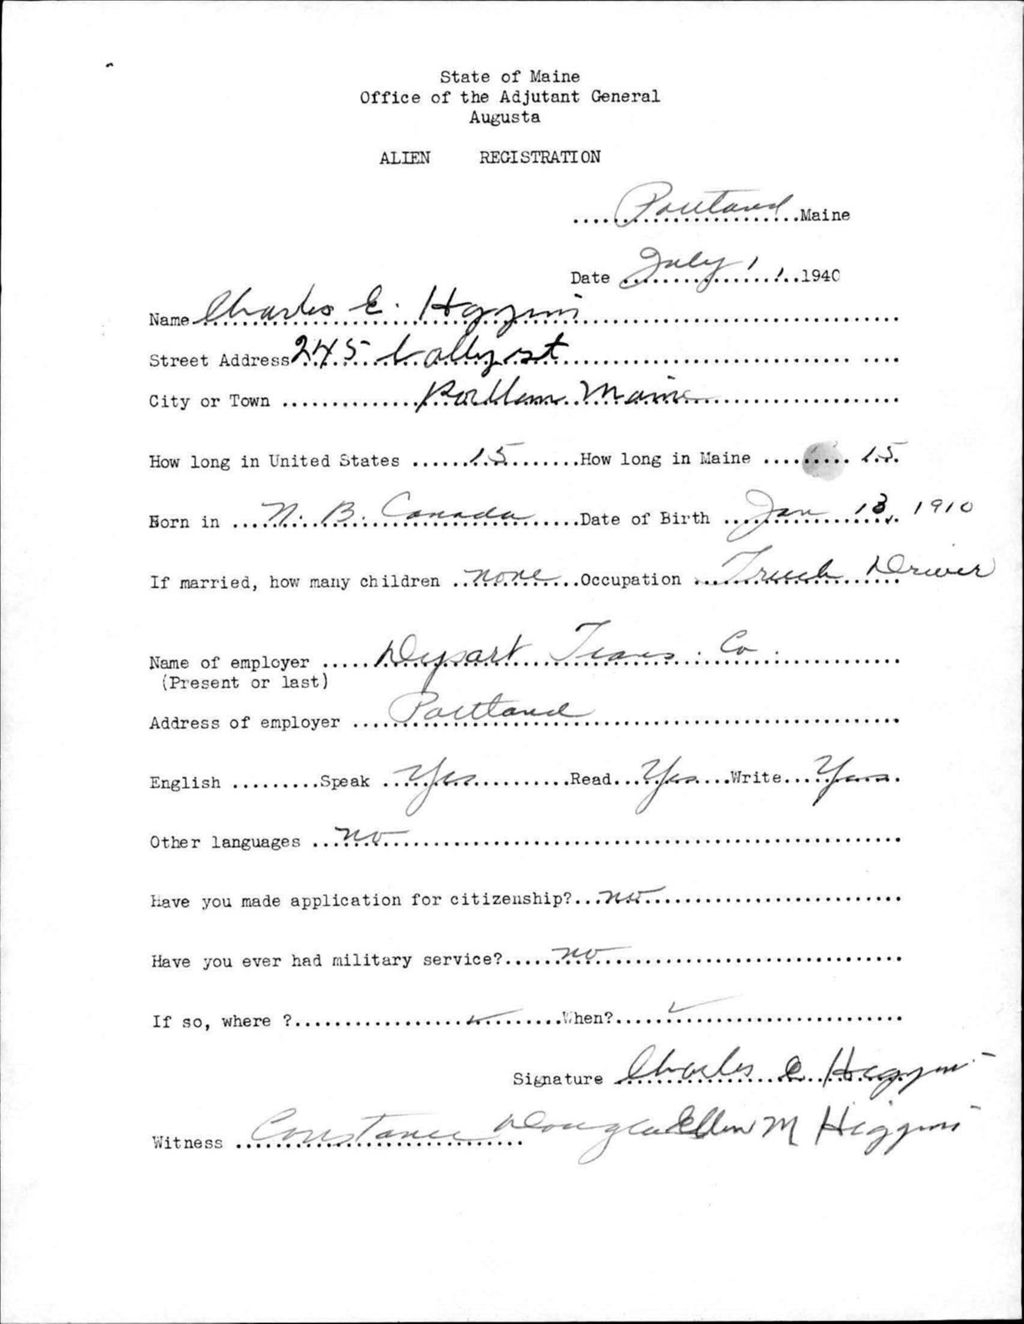 State of Maine
Office of the Adjutant General
Augusta
ALIEN REGISTRATION
Portland Maine
Date July 1, 1940
Name Charles E. Higgins
Street Address 245 st
City or Town Maine
How long in United States 15 How long in Maine 15
Born in N. B. Canada Date of Birth Jan 13, 1910
If married, how many children none Occupation Truck Driver
Name of employer Dysart Trans. Co.
(Present or last)
Address of employer Portland
English Speak Yes Read Yes Write Yes
Other languages no
Have you made application for citizenship? no
Have you ever had military service? no
If so, where ? When?
Signature Charles E Higgins
Witness Constance Ellen M Higgins